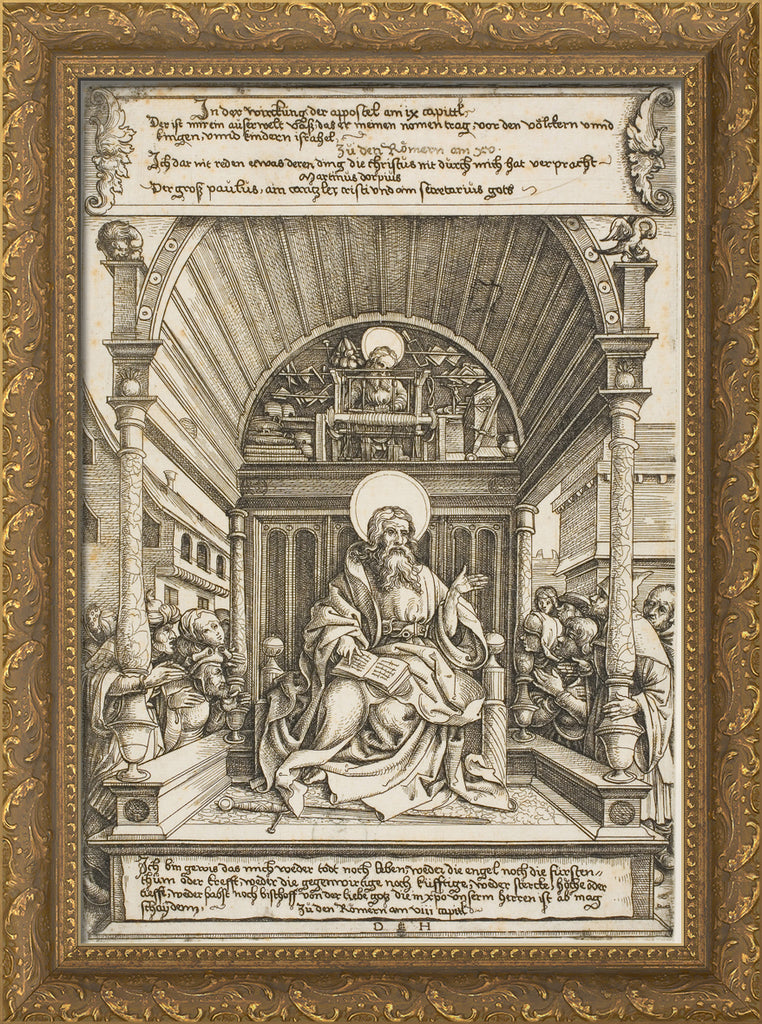 In der wirckung der appostel am ix capittl
Der ist mir ein auserwelt vaß, das er meinen nomen trag, vor den völckern unnd
kinigen, unnd kindern israhel,
Zů den Römern am xv
Ich dar nit reden etwas deren ding die christus nit durch mich hat verpracht
Martinus dorpius
Der groß paulus, ain cantzler cristi und ain secretarius gots
Ich bin gewis das mich weder todt noch läben, weder die engel noch die fürsten
thum oder krefft, weder die gegenwirtige noch künfftige, weder stercke, höche oder
tieffe, weder pabst noch bischoff von der liebe gotz die in xpo unserm herren ist ab mag
schayden,
Zů den Römern am viii capitl
D H